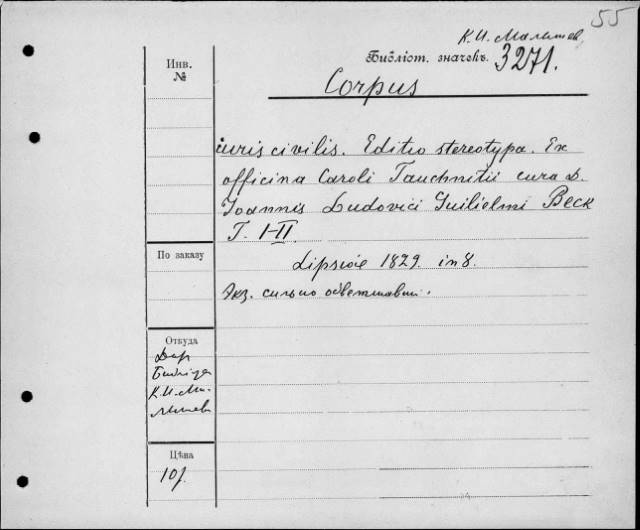 55
К. И. Малышев
Библіот. значекъ. 3271.
Инв.
№
Corpus
iuris civilis. Editio stereotypa. Ex
officina Caroli Tauchnitii cura D.
Joannis Ludovici Guilielmi Beck
T. I-II.
По заказу
Lipsiae 1829. in 8.
Экз. сильно обветшавш.
Откуда
Дар
К. И. Ма-
лышева
Цѣна
10 р.